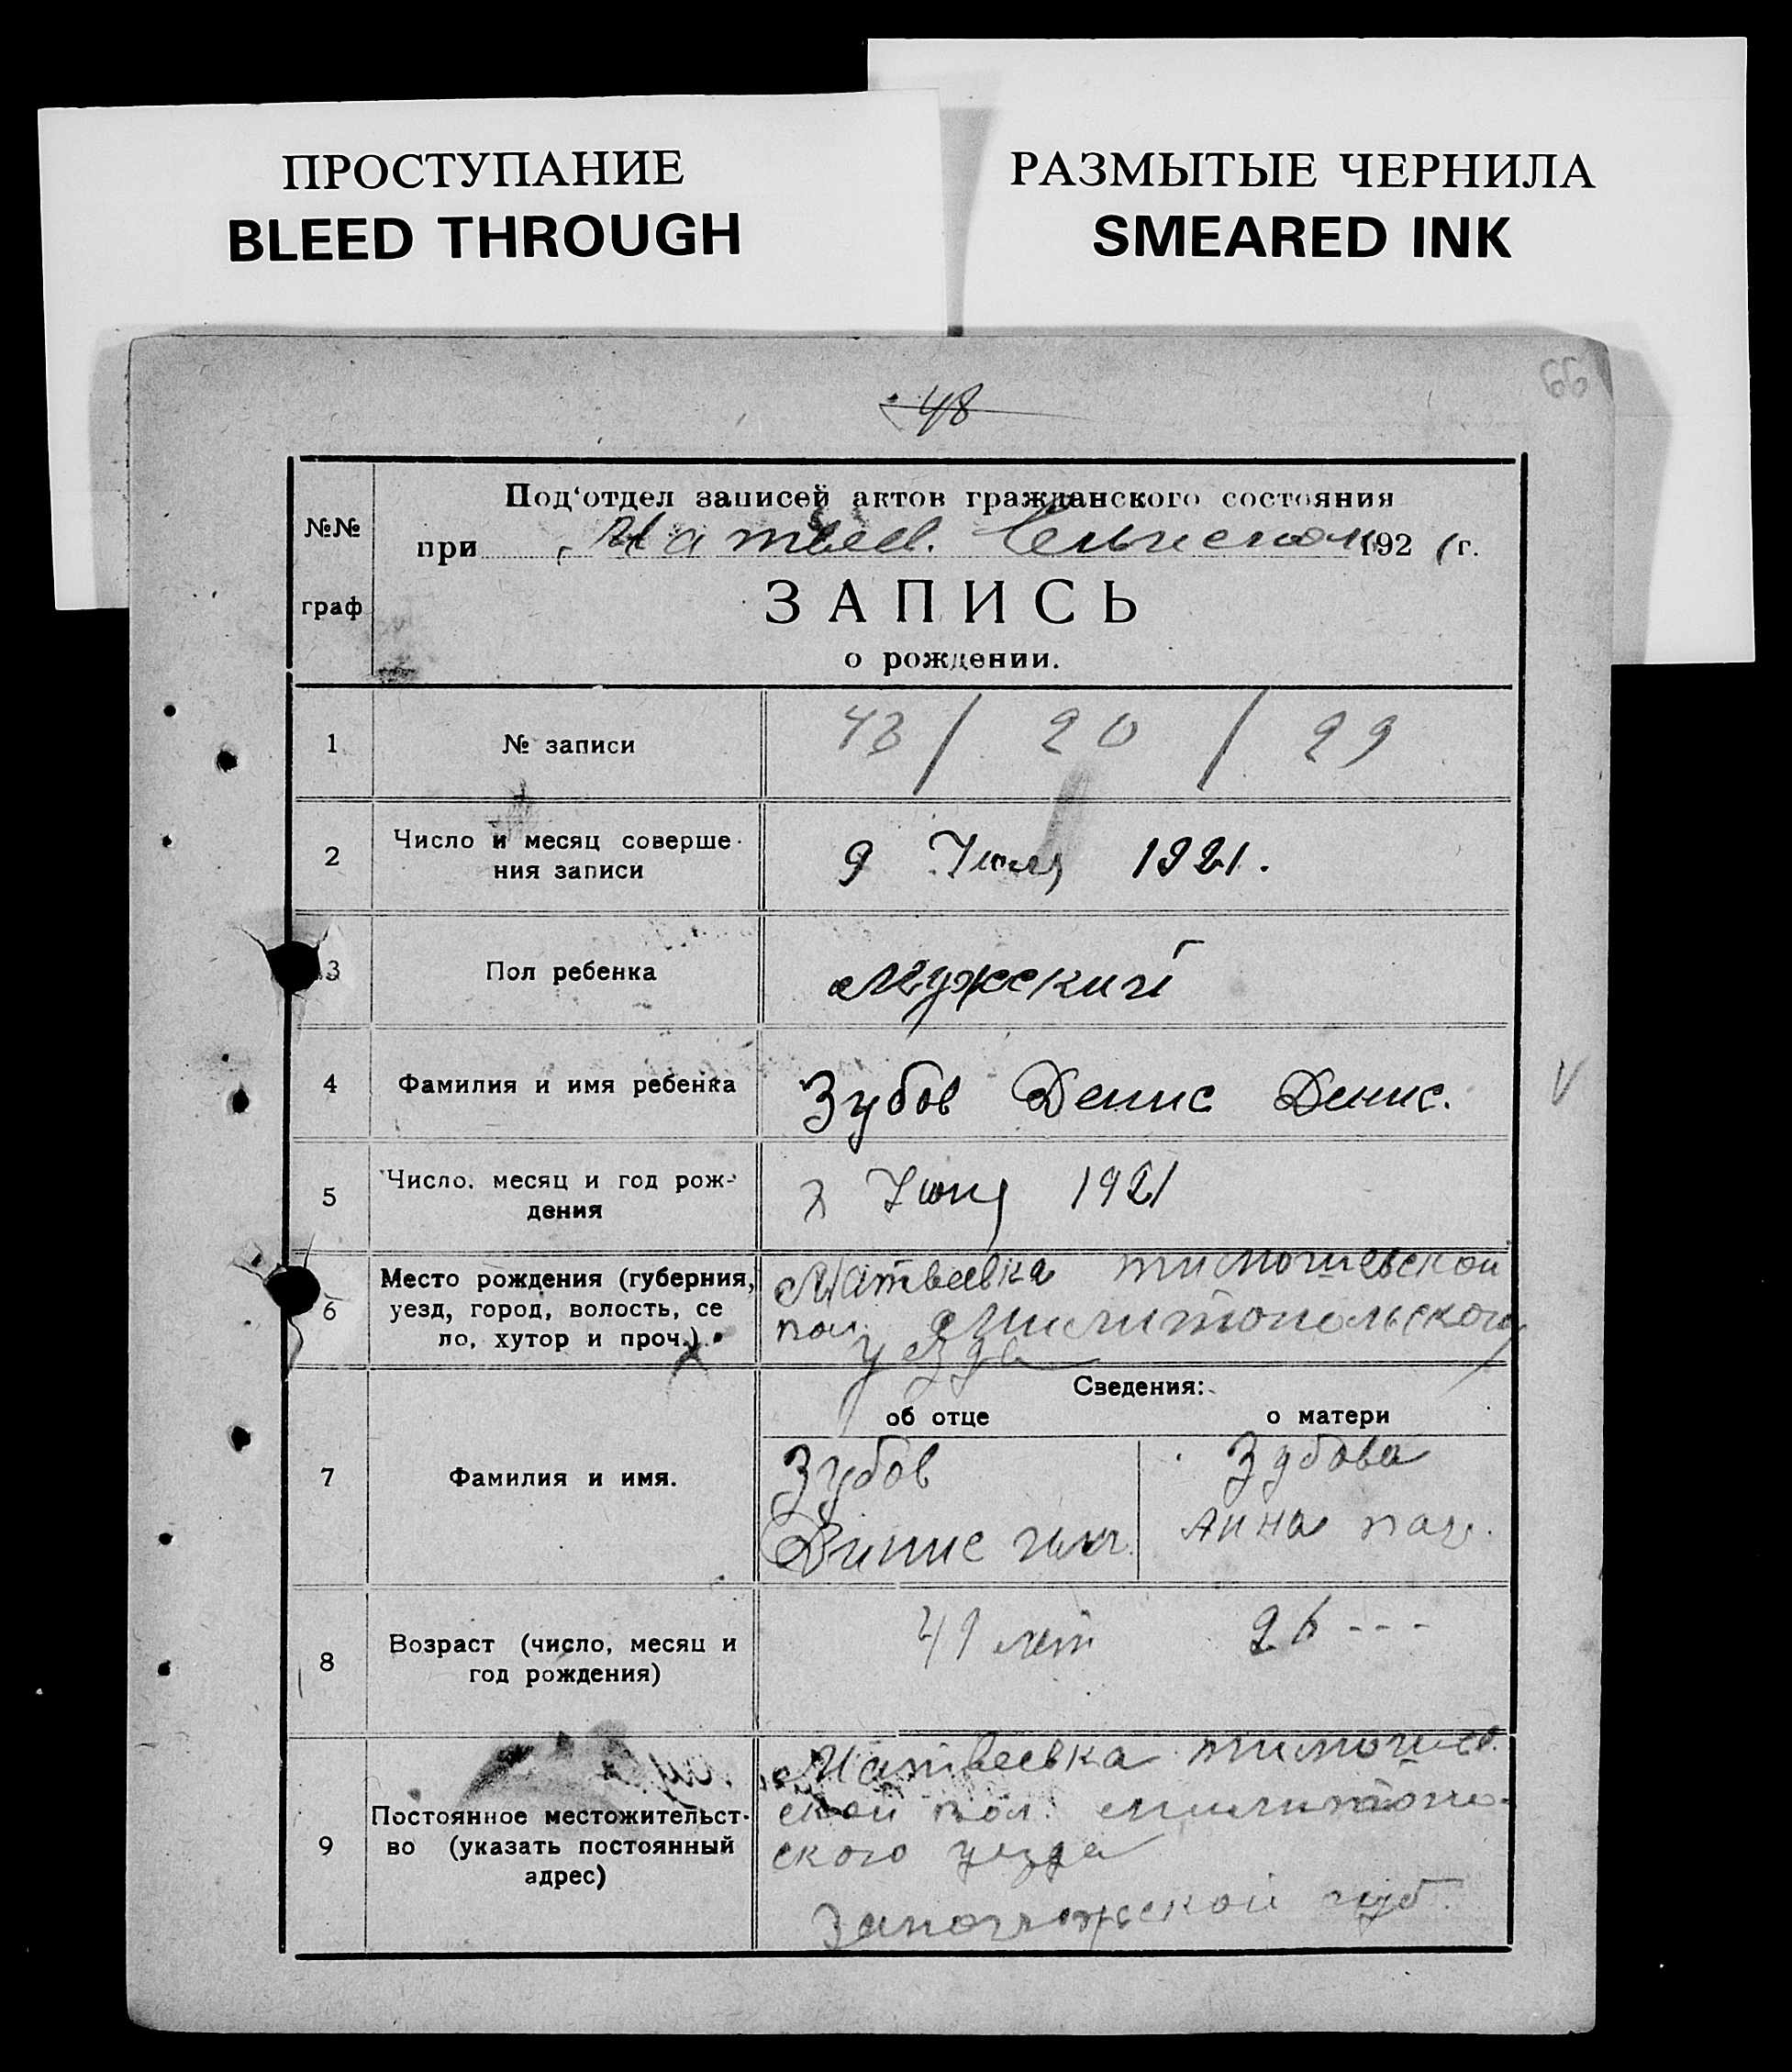 ПРОСТУПАНИЕ
BLEED THROUGH
РАЗМЫТЫЕ ЧЕРНИЛА
SMEARED INK
66
48
№№
граф
Под'отдел записей актов гражданского состояния
при Матвеев. 1921 г.
ЗАПИСЬ
о рождении.
1 № записи 43 / 20 / 29
2 Число и месяц соверше-
ния записи
9 Июля 1921.
3 Пол ребенка Мужский
4 Фамилия и имя ребенка Зубов Денис Денис. V
5 Число, месяц и год рож-
дения
Июня 1921
6 Место рождения (губерния,
уезд, город, волость, се
ло, хутор и проч.)
Матвеевка тимошевской
Милитопольского
уезда
Сведения:
об отце о матери
7 Фамилия и имя.
Зубов Зубова
Динис Анна
8 Возраст (число, месяц и
год рождения)
41 лет 26 - - -
9 Постоянное местожительст-
во (указать постоянный
адрес)
Матвеевка тимошев.
ской вол. милитопо-
ского уезда
Запорожской губ.